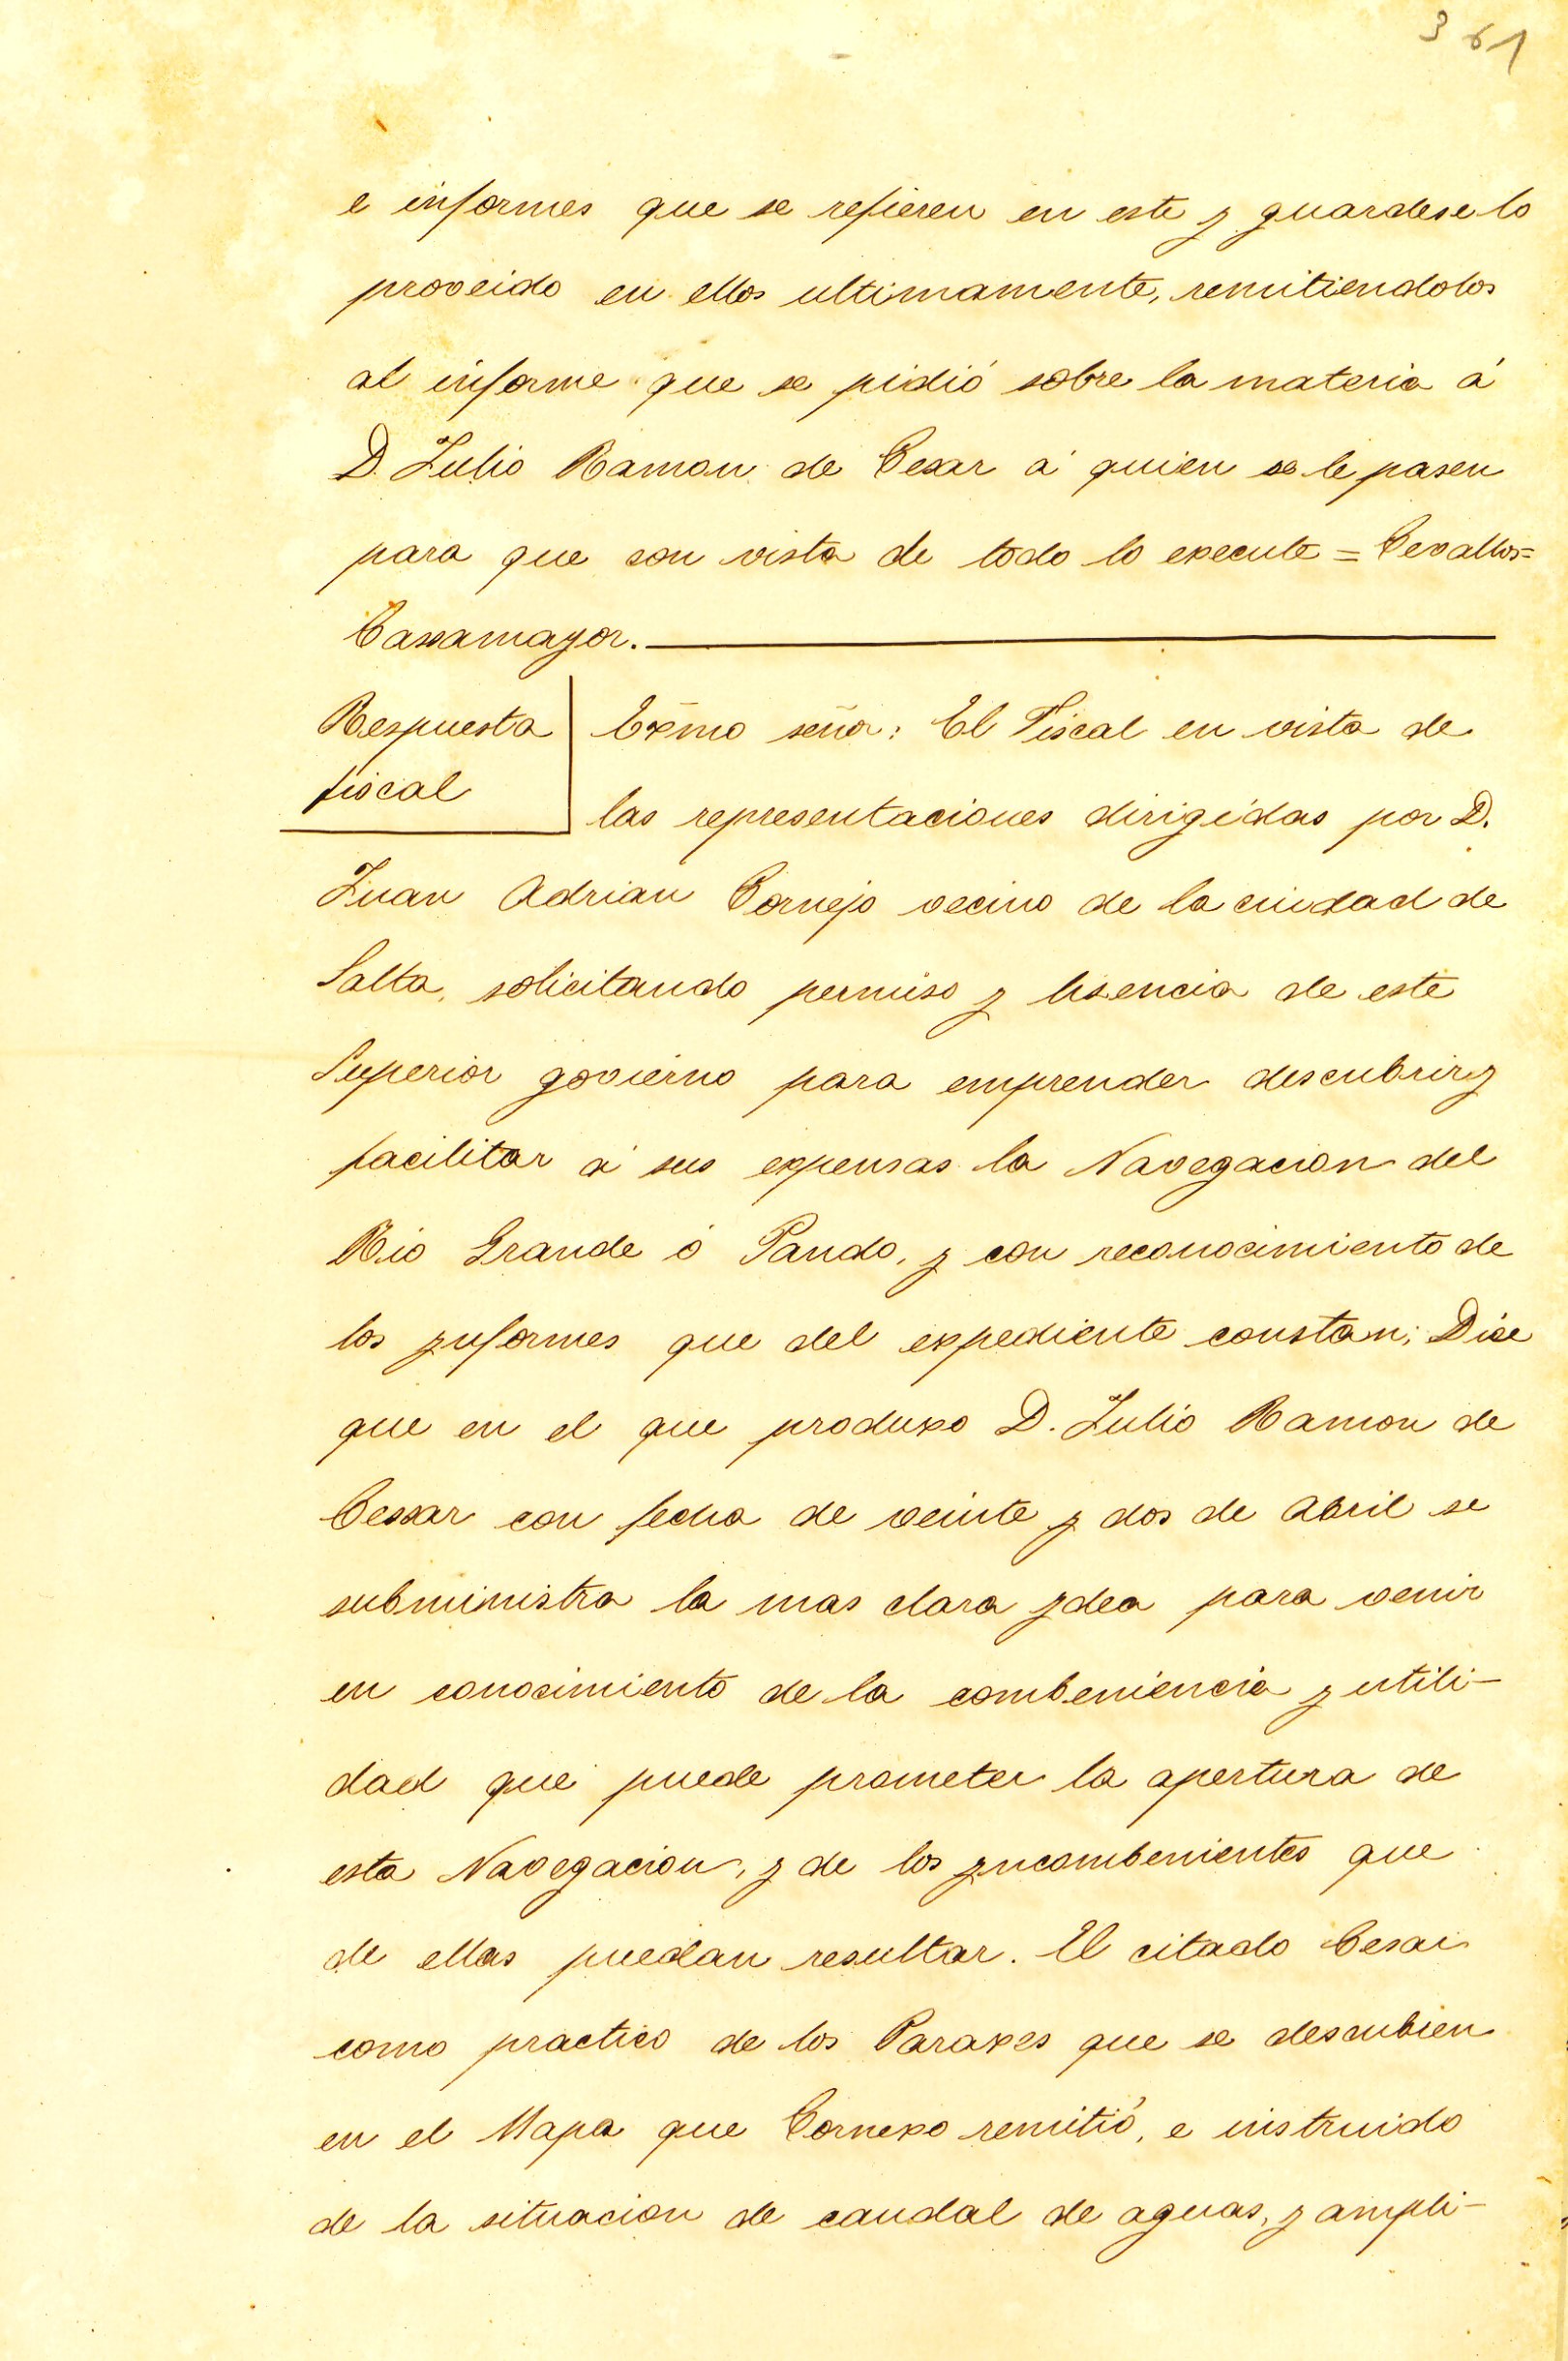 361
e informes que se refieren en este y guardese lo
proveido en ellos ultimamente, remitiendolos
al informe que se pidió sobre la materia á
D. Julio Ramon de Cesar á quien se le pasen
para que con vista de todo lo execute = Cevallos =
Cassamayor.
Respuesta
fiscal
Exmo señor: El Fiscal en vista de
las representaciones dirigidas por D.
Juan Adrian Cornejo vecino de la ciudad de
Salta, solicitando permiso y lisencia de este
Superior govierno para emprender descubrir y
facilitar á sus expensas la Navegacion del
Rio Grande ó Pando, y con reconocimiento de
los ynformes que del expediente constan; Dice
que en el que produxo D. Julio Ramon de
Cessar con fecha de veinte y dos de Abril se
subministra la mas clara ydea para venir
en conocimiento de la combeniencia y utili-
dad que puede prometer la apertura de
esta Navegacion, y de los yncombenientes que
de ellas puedan resultar. El citado Cesar
como practico de los Paraxes que se descubien
en el Mapa que Cornexo remitió, e instruido
de la situacion de caudal de aguas, y ampli-